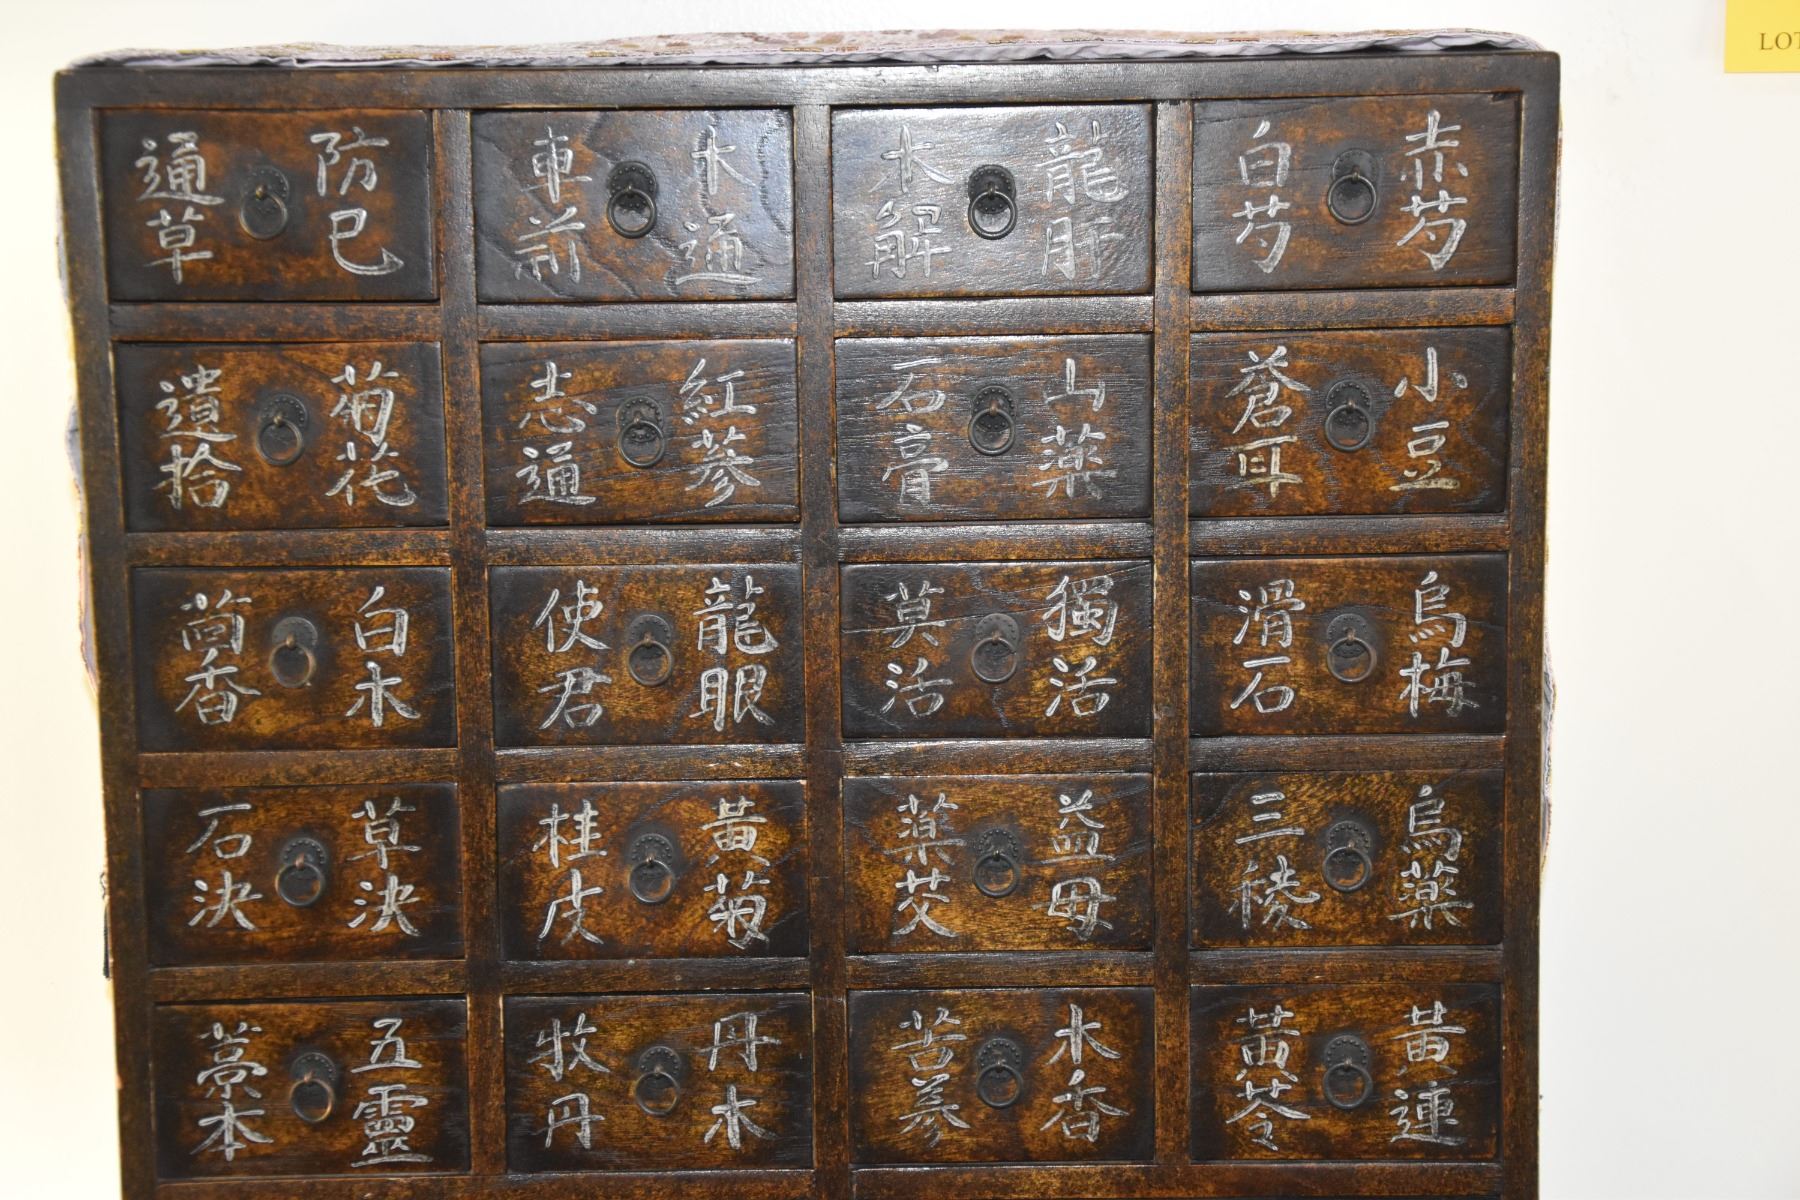 LOT
防巳 通草
木通 車前
龍肝 木解
赤芍 白芍
菊花 遺拾
紅蔘 志通
山藥 石膏
小豆 蒼耳
白木 茴香
龍眼 使君
獨活 莫活
烏梅 滑石
草決 石決
黃菊 桂皮
益母 藥艾
烏藥 三稜
五靈 藁本
丹木 牧丹
木香 苦蔘
黃連 黃芩